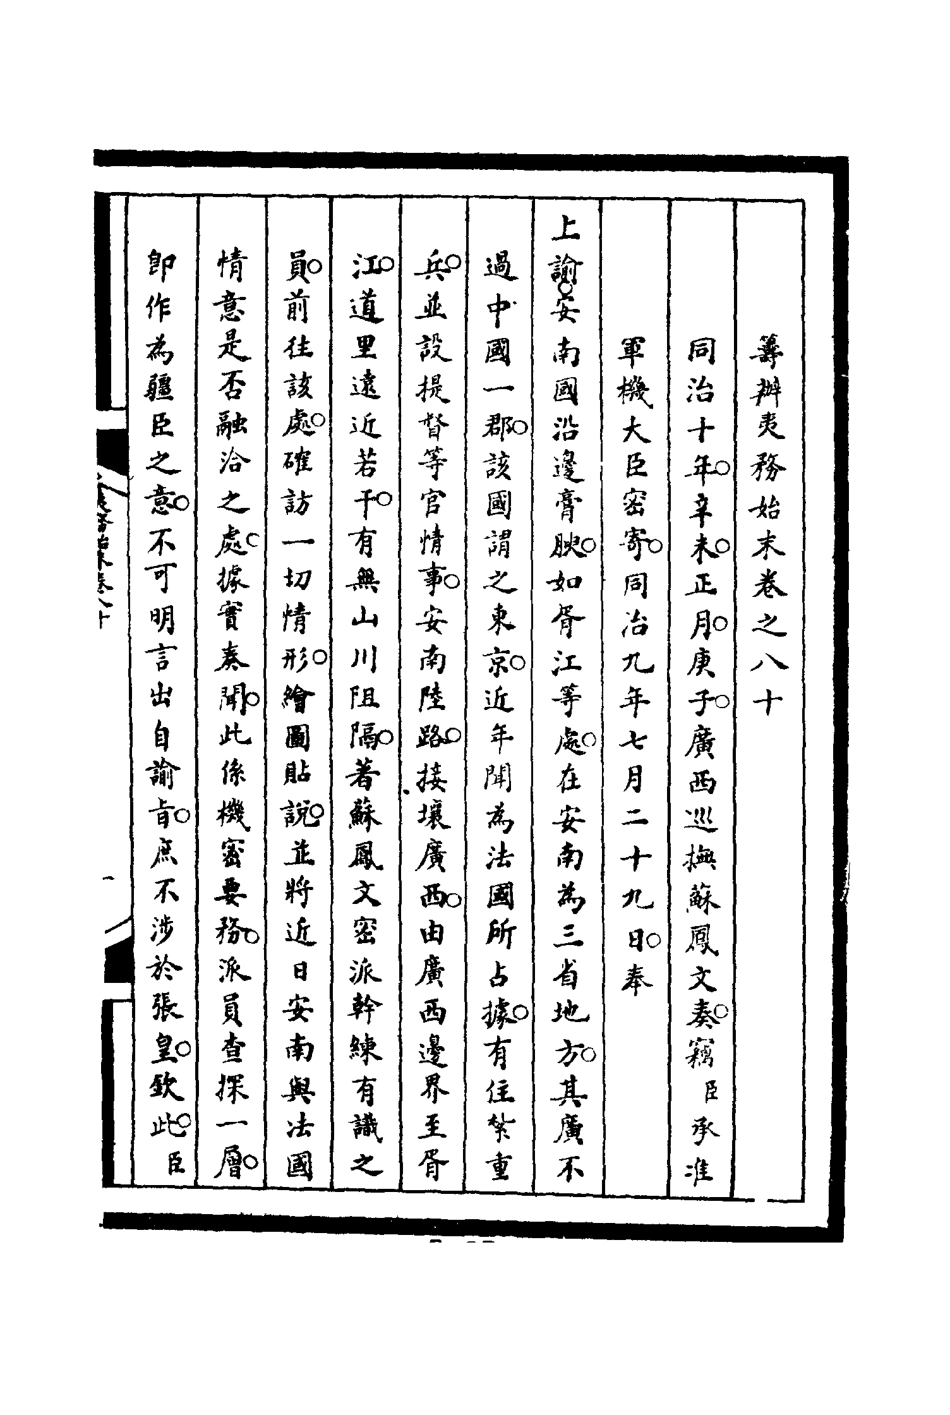 籌辦夷務始末卷之八十
同治十年。辛未。正月。庚子。廣西巡撫蘇鳳文奏。竊臣承准
軍機大臣密寄。同治九年七月二十九日。奉
上諭。安南國沿邊膏腴。如胥江等處。在安南為三省地方。其廣不
過中國一郡。該國謂之東京。近年聞為法國所占據。有住紮重
兵。並設提督等官情事。安南陸路。接壤廣西。由廣西邊界至胥
江。道里遠近若干。有無山川阻隔。著蘇鳳文密派幹練有識之
員。前往該處。確訪一切情形。繪圖貼說。並將近日安南與法國
情意是否融洽之處。據實奏聞。此係機密要務。派員查探一層。
即作為疆臣之意。不可明言出自諭旨。庶不涉於張皇。欽此。臣